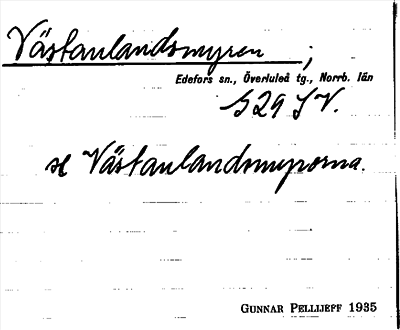 Västanlandsmyren ;
Edefors sn., Överluleå tg., Norrb. län
S29 SV.
se Västanlandsmyrorna.
GUNNAR PELLIJEFF 1935